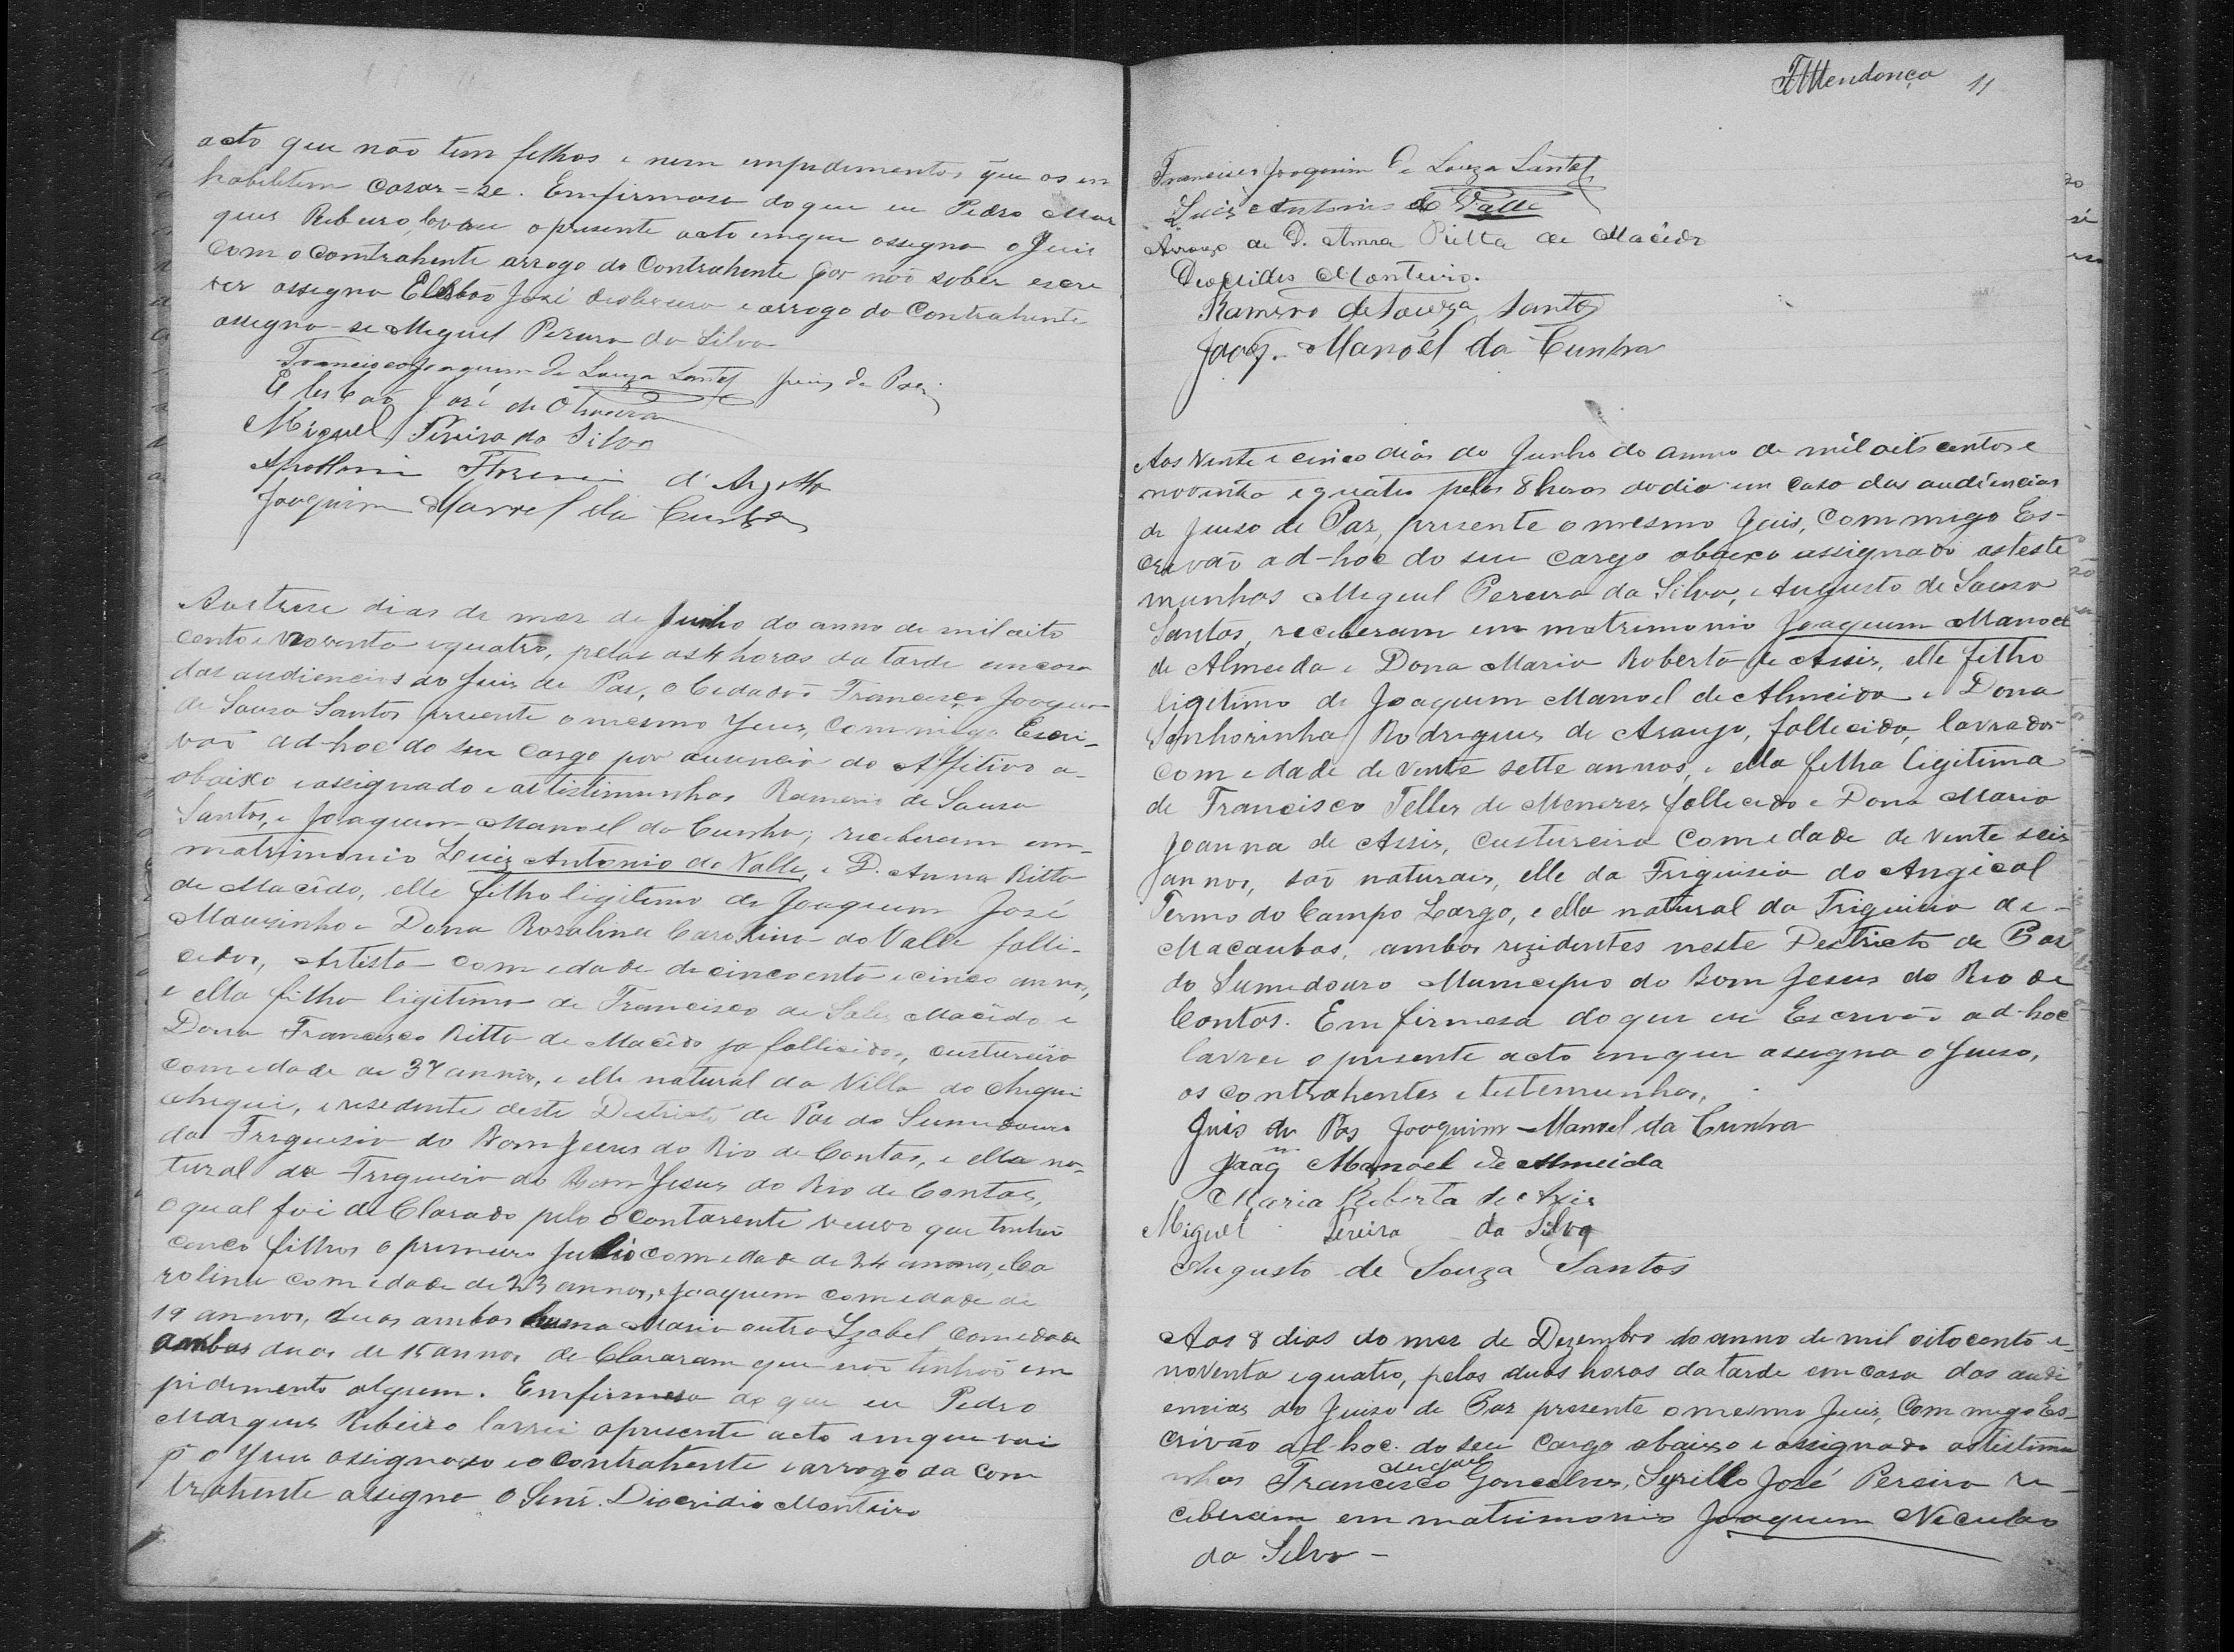 acto que não tem filhos e nem empidimentos que os in
habilitem Casar=se. Emfirmasa do que eu Pedro Mar
ques Ribeiro, lavrei o presente acto emque assigna o Juis
Com o Contrahente arrogo da Contrahente por não saber escre
ver assigna Elesbão José de oliveira e arrogo do Contrahente
assigna-se Miguel Pereira da Silva
Francisco Joaquim de Souza Santos Juiz de Paz
Elesbão José de Oliveira
Miguel Pereira da Silva
d'
Joaquim Manoel da Cunha
Aos trese dias do mez de Junho do anno de mil oito
cento e Noventa e quatro, pelas as 4 horas da tarde em casa
das audiencias do Juis de Pas, o Cidadão Francisco Joaquim
de Sousa Santos presente o mesmo Juis, Commigo Escri-
vão ad-hoc do seu Cargo por ausencia do Affetivo a-
abaixo e assignado e as testimunhas Ramero de Sousa
Santos, e Joaquim Manoel da Cunha; receberam em-
matrimonio Luiz Antonio do Valle, e D. Anna Ritta
de Macêdo, elle filho ligitimo de Joaquim José
Mousinho e Dona Rosalina Carolina do Valle falli-
cidos, Artista com idade de cincoenta e cinco annos,
e ella filha ligitima de Francisco de Sales Macêdo e
Dona Francisca Ritta de Macêdo ja fallicidos, custureira
com idade de 37 annos, e elle natural da Villa do chiqui
chiqui, e residente deste Destricto de Pas do Sumidouro
da Friguisia do Bom Jesus do Rio de Contas, e ella na-
tural da Friguisia do Bom Jesus do Rio de Contas,
o qual foi de Clarado pelo o Contarente veuvo que tinha
cinco filhos o primeiro Julio com idade de 24 annos, Ca
rolina com idade de 23 annos, e Joaquim com idade de
19 annos, duas ambas huma Maria outra Izabel com idade
ambas duas de 15 annos de Clararam que não tinhão im
pidimento algum. Emfirmesa do que eu Pedro
Marques Ribeiro lavrei o presente acto emque vai
p o Juis assignado e o Contrahente e arrogo da Com
trahente assigna o Senr. Diocridio Monteiro
FMendonça 11
Francisco Joaquim de Souza Santos
Luiz Antonio do Valle
Arrogo de D. Anna Ritta de Macêdo
Monteiro.
Ramero de Souza Santos
Joaq. Manoel da Cunha
Aos vinte e cinco dias do Junho do anno de mil oito centos e
noventa e quatro pelas 8 horas do dia em Casa das audiencias
de Juiso de Paz, presente o mesmo Juis, Commigo Es-
crivão ad-hoc do seu Cargo abaixo assignado as teste
munhas Miguel Pereira da Silva, e Augusto de Sousa
Santos, receberam em matrimonio Joaquim Manoel
de Almeida e Dona Maria Roberta de Assis, elle filho
ligitimo de Joaquim Manoel de Almeida e Dona
Senhorinha Rodrigues de Araujo, fallecida, lavrador
com idade de vente sette annos, e ella filha ligitima
de Francisco Telles de Menezes fallecido e Dona Maria
Joanna de Assis, custureira Com idade de vente seis
annos, são naturais, elle da Friguisia do Angical
Termo do Campo Largo, e ella natural da Friguisia de-
Macaubas, ambos rezidentes neste Destricto de Paz
do Sumedouro Municipio do Bom Jesus do Rio de
Contas. Em firmesa do que eu Escrivão ad-hoc
lavrei o presente acto emque asigna o Juiso,
os contrahentes e testemunhas.
Juis de Pas Joaquim Manoel da Cunha
Joaqm Manoel de Almeida
Maria Ruberta de Assis
Miguel Pereira da Silva
Augusto de Souza Santos
Aos 8 dias do mez de Dezembro do anno de mil oitocento e
noventa e quatro, pelas duas horas da tarde em casa das audi
encias do Juiso de Paz presente o mesmo Juis, Com migo Es-
crivão ad-hoc. do seu Cargo abaixo e assignado as testimu
nhas Francisco Goncalves, Syrillo José Pereira re-
ceberam em matrimonio Joaquim Niculao
da Silva-